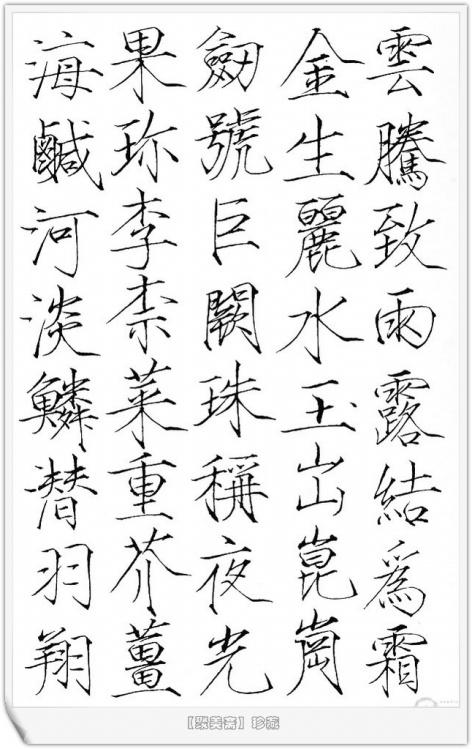 雲騰致雨露結爲霜
金生麗水玉出崑崗
劍號巨闕珠稱夜光
果珎李柰菜重芥薑
海鹹河淡鱗潛羽翔
【聚美斋】珍藏